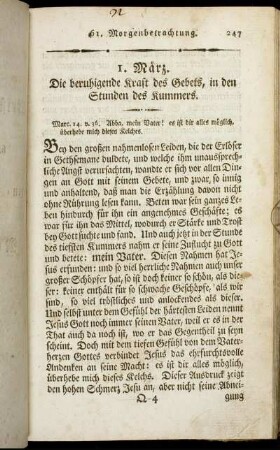 61. Morgenbetrachtung. 247
1. März.
Die beruhigende Kraft des Gebets, in den
Stunden des Kummers.
Marc. 14. v. 36. Abba, mein Vater! es ist dir alles möglich,
überhebe mich dieses Kelches.
Bey den großen nahmenlosen Leiden, die der Erlöser
in Gethsemane duldete, und welche ihm unaussprech-
liche Angst verursachten, wandte er sich vor allen Din-
gen an Gott mit seinem Gebete, und zwar, so innig
und anhaltend, daß man die Erzählung davon nicht
ohne Rührung lesen kann. Beten war sein ganzes Le-
ben hindurch für ihn ein angenehmes Geschäfte; es
war für ihn das Mittel, wodurch er Stärke und Trost
bey Gott suchte und fand. Und auch jetzt in der Stunde
des tiefsten Kummers nahm er seine Zuflucht zu Gott
und betete: mein Vater. Diesen Nahmen hat Je-
sus erfunden: und so viel herrliche Nahmen auch unser
großer Schöpfer hat, so ist doch keiner so schön, als die-
ser: keiner enthält für so schwache Geschöpfe, als wir
sind, so viel tröstliches und anlockendes als dieser.
Und selbst unter dem Gefühl der härtesten Leiden nennt
Jesus Gott noch immer seinen Vater, weil er es in der
That auch da noch ist, wo er das Gegentheil zu seyn
scheint. Doch mit dem tiefen Gefühl von dem Vater-
herzen Gottes verbindet Jesus das ehrfurchtsvolle
Andenken an seine Macht: es ist dir alles möglich,
überhebe mich dieses Kelchs. Dieser Ausdruck zeigt
den hohen Schmerz Jesu an, aber nicht seine Abnei-
Q 4 gung